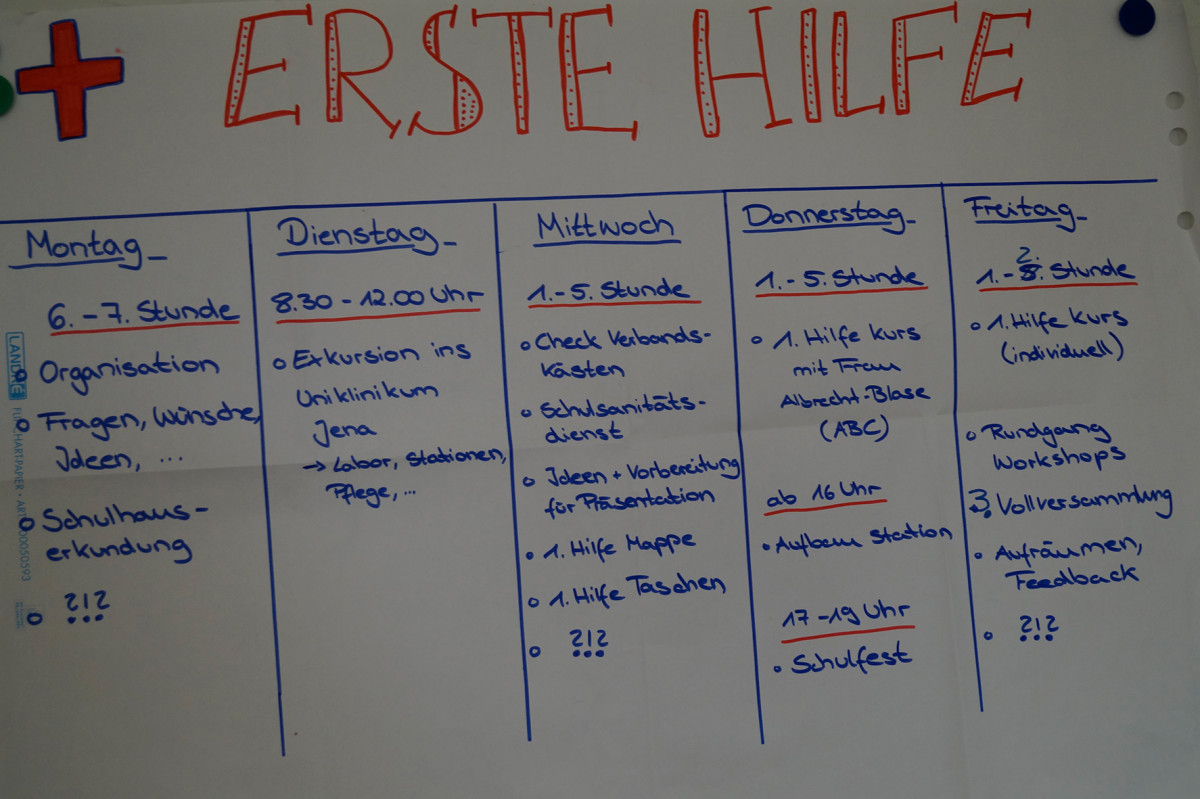 ERSTE HILFE
Montag
6. - 7. Stunde
Organisation
Fragen, Wünsche,
Ideen, ...
Schulhaus-
erkundung
?!?
Dienstag
8.30 - 12.00 Uhr
Exkursion ins
Uniklinikum
Jena
→ Labor, Stationen,
Pflege, ...
Mittwoch
1. - 5. Stunde
Check Verbands-
kästen
Schulsanitäts-
dienst
Ideen + Vorbereitung
für Präsentation
1. Hilfe Mappe
1. Hilfe Taschen
?!?
Donnerstag
1. - 5. Stunde
1. Hilfe Kurs
mit Frau
Albrecht-Blase
(ABC)
ab 16 Uhr
Aufbau Station
17 - 19 Uhr
Schulfest
Freitag
1. - 2. Stunde
1. Hilfe Kurs
(individuell)
Rundgang
Workshops
3. Vollversammlung
Aufräumen,
Feedback
?!?
LANDRÉ